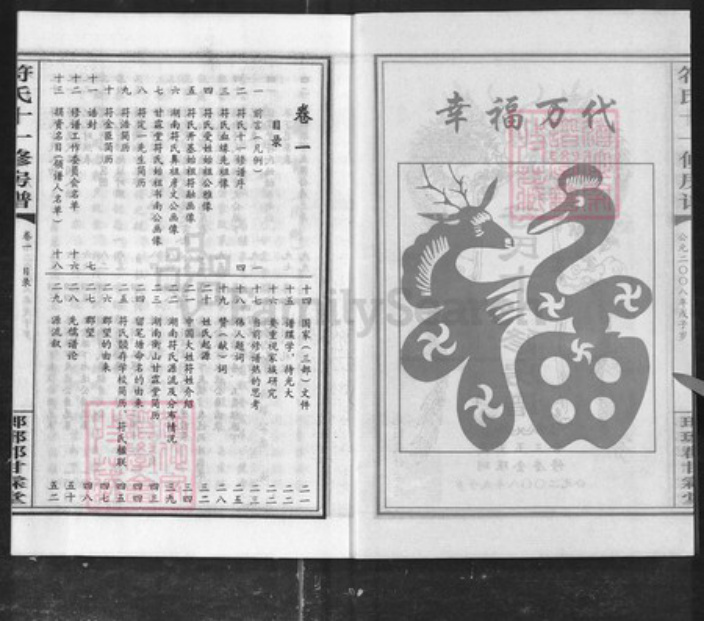 幸福万代
公元二〇〇八年戊子岁
符氏十一修房谱
卷一 目录
卷一
目录
一 前言(凡例) 一
二 符氏十一修谱序 四
三 符氏血缘先祖像
四 符氏受姓始祖公雅像
五 符氏开基始祖符融画像
六 湖南符氏鼻祖彦文公画像
七 甘霖堂符氏始祖书南公画像
八 符定一先生简历
九 符浩简历
十 符金臣简历
十一 谱封 七
十二 修谱工作委员会名单 十六
十三 捐资名目(领谱人名单) 十八
十四 国家(三部)文件 二一
十五 谱理学,待光大 二二
十六 要重视家族研究 二二
十七 当前修谱热的思考 二三
十八 伟人题词 二五
十九 赞(献)词 二八
二十 姓氏起源 三二
二一 中国大姓符姓介绍 三四
二二 湖南符氏源流及分布情况 三九
二三 湖南衡山甘霖堂简历 四三
二四 留笔塘命名的由来 四四
二五 符氏兢存学校简历、符氏楹联 四五
二六 郡望的由来 四七
二七 郡望 四八
二八 先儒谱论 五十
二九 源流叙 五二
FamilySearch